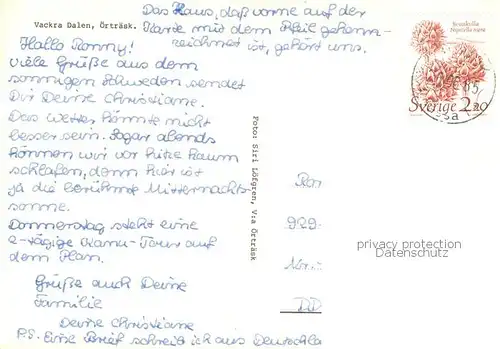 Das Haus, daß vorne auf der
Karte mit dem Pfeil gekenn-
zeichnet ist, gehört uns.
Vackra Dalen, Örträsk.
Hallo Ronny!
Viele Grüße aus dem
sonnigen Schweden sendet
Dir Deine Christiane.
Das Wetter könnte nicht
besser sein. Sogar abends
können wir vor hitze kaum
schlafen, denn hier ist
ja die berühmte Mitternachts-
sonne.
Donnerstag steht eine
2-tägige Kanu-Tour auf
dem Plan.
Grüße auch Deine
Familie
Deine Christiane
P.S. Eine Brief schreib ich aus Deutschla
Foto: Siri Löfgren, Via Örträsk
Sverige 2.20
85
sa
Ron
929
DD
privacy protection
Datenschutz